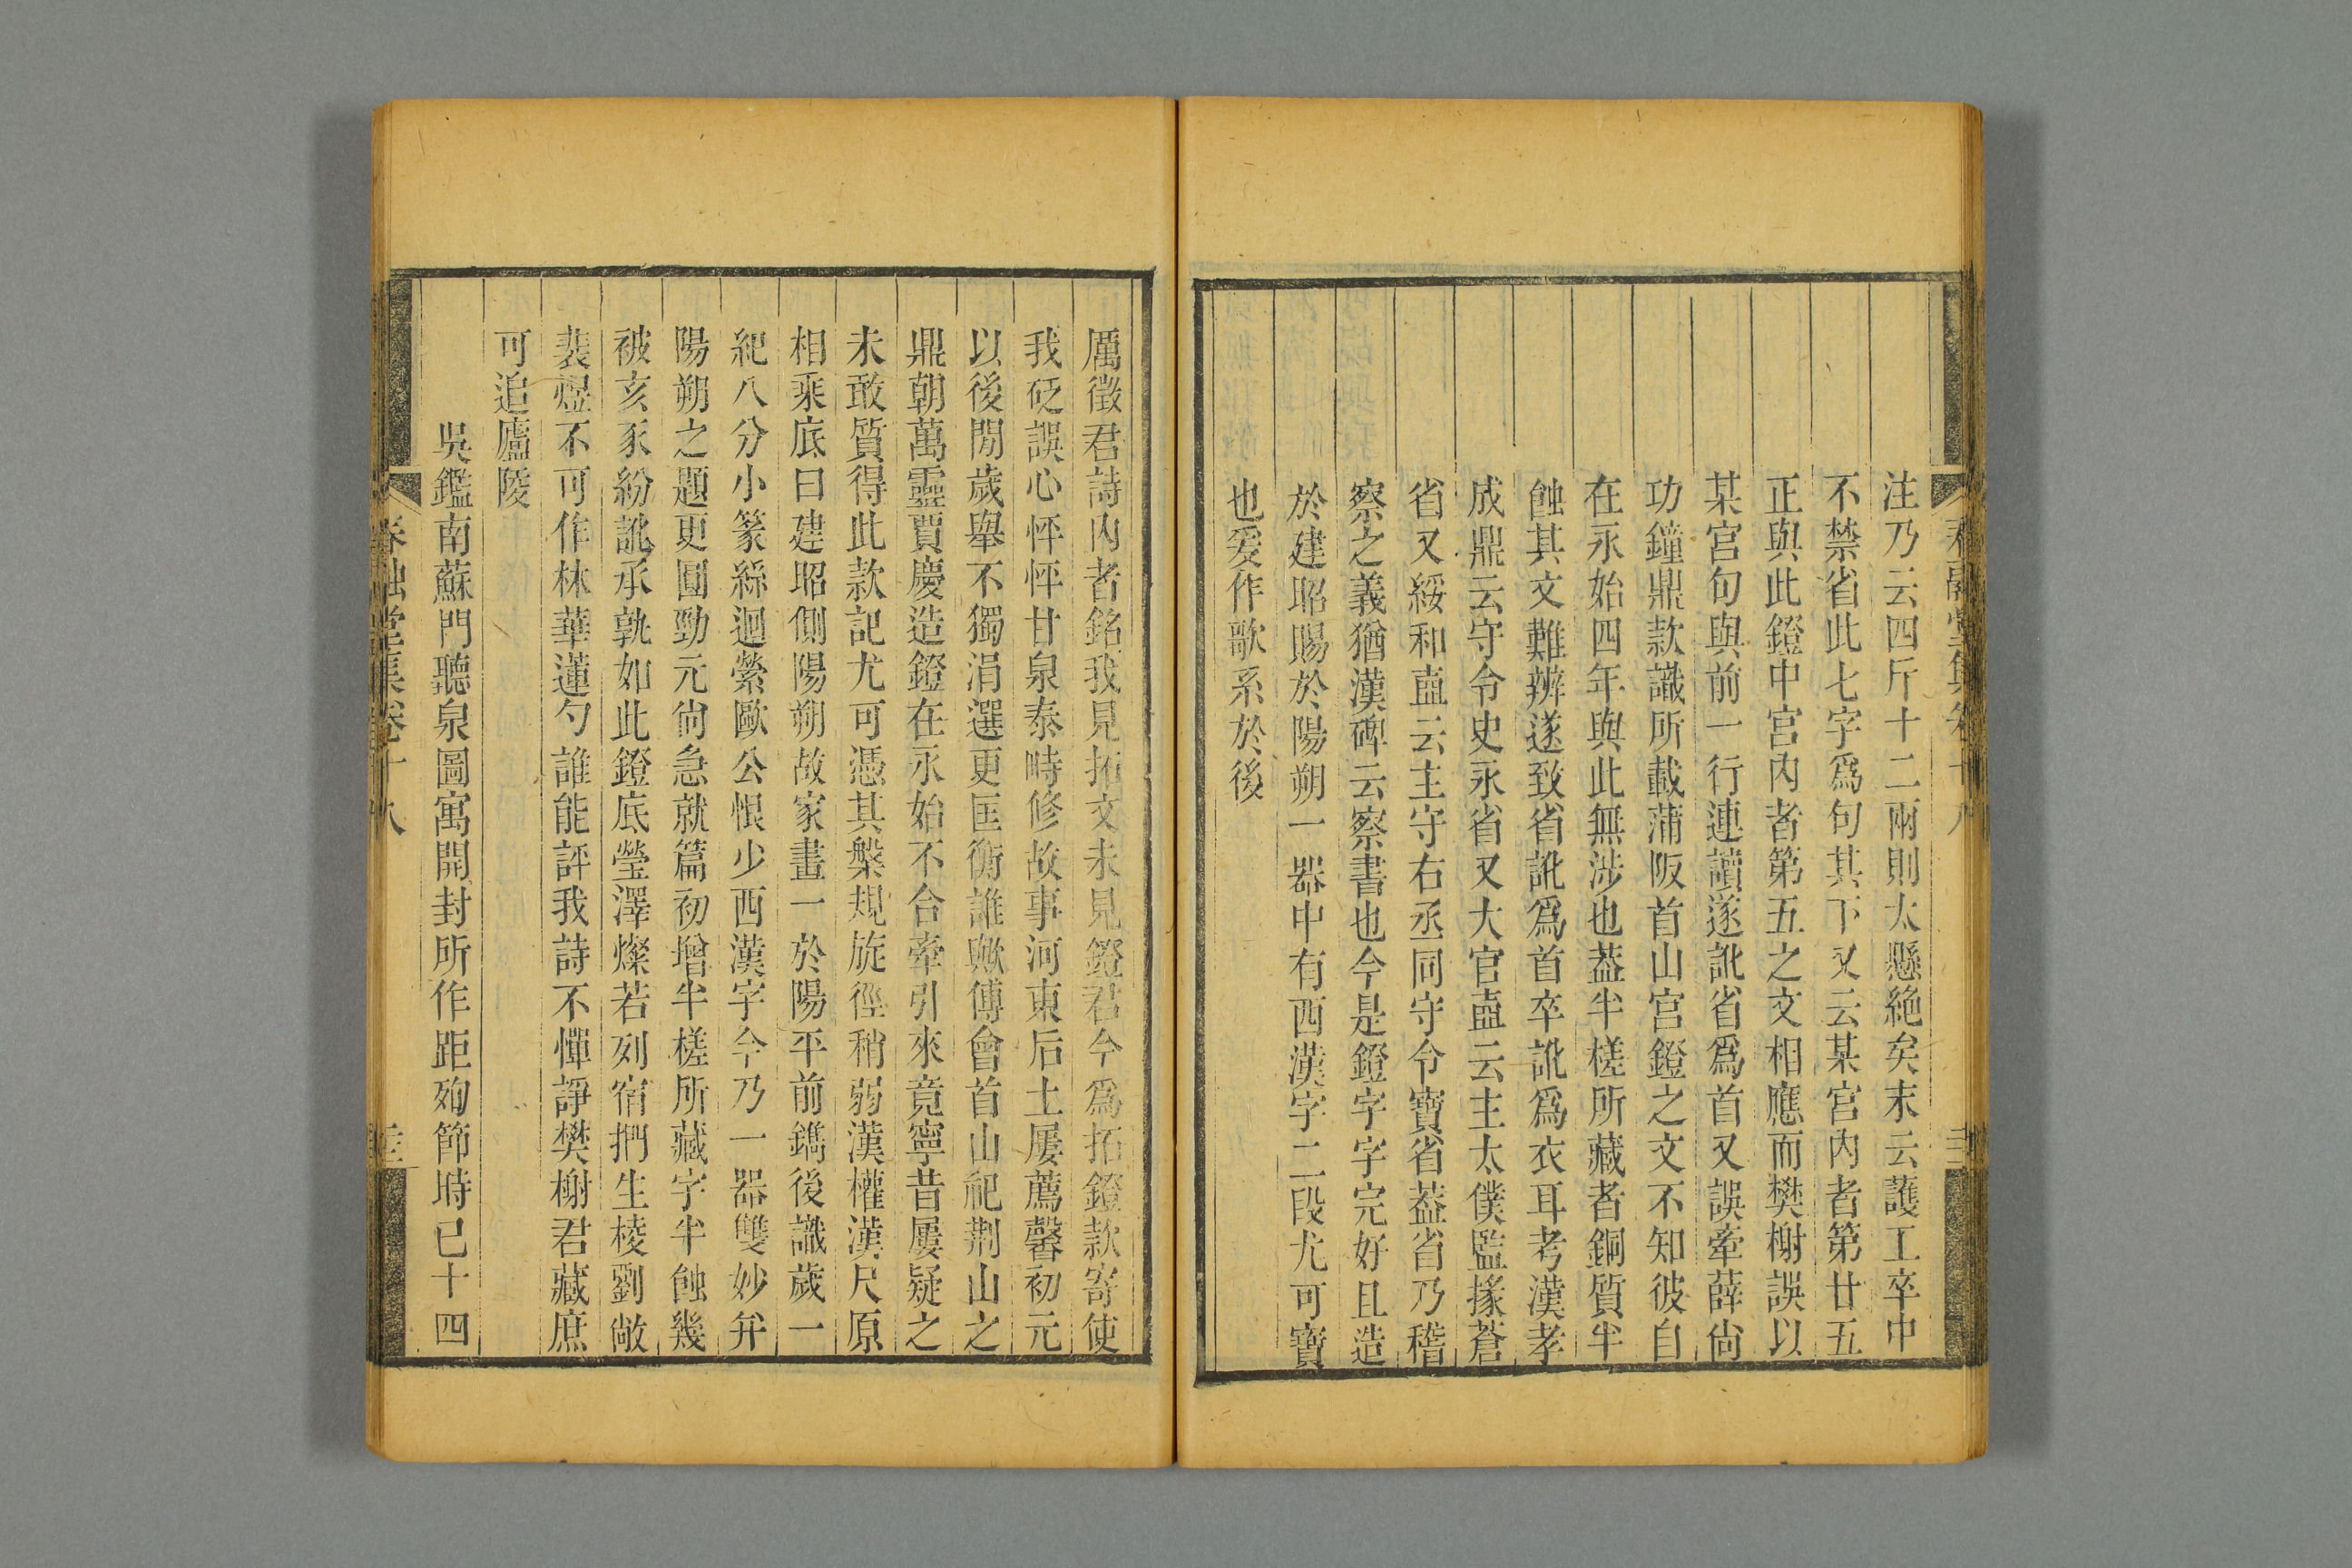 注乃云四斤十二兩則太懸絶矣末云護工卒中
不禁省此七字爲句其下又云某宮內者第廿五
正與此鐙中宮內者第五之文相應而樊榭誤以
某宮句與前一行連讀遂訛省爲首又誤牽薛尙
功鐘鼎款識所載蒲阪首山宮鐙之文不知彼自
在永始四年與此無涉也葢半槎所藏者銅質半
蝕其文難辨遂致省訛爲首卒訛爲衣耳考漢孝
成鼎云守令史永省又大官壺云主太僕監掾蒼
省又綏和壺云主守右丞同守令寶省葢省乃稽
察之義猶漢碑云察書也今是鐙字字完好且造
於建昭賜於陽朔一器中有西漢字二段尤可寶
也爰作歌系於後
厲徵君詩內者銘我見拓文未見鐙君今爲拓鐙款寄使
我砭誤心怦怦甘泉泰畤修故事河東后土屢薦馨初元
以後閒歲舉不獨涓選更匡衡誰歟傅會首山祀荆山之
鼎朝萬靈賈慶造鐙在永始不合牽引來竟寧昔屢疑之
未敢質得此款記尤可憑其槃規旋徑稍弱漢權漢尺原
相乘底曰建昭側陽朔故家畫一於陽平前鐫後識歲一
紀八分小篆絲迴縈歐公恨少西漢字今乃一器雙妙幷
陽朔之題更圓勁元尙急就篇初增半槎所藏字半蝕幾
被亥豕紛訛承孰如此鐙底瑩澤燦若列宿捫生棱劉敞
裴煜不可作林華蓮勺誰能評我詩不憚諍樊榭君藏庶
可追廬陵
吳鑑南蘇門聽泉圖寓開封所作距殉節時已十四
卷十八